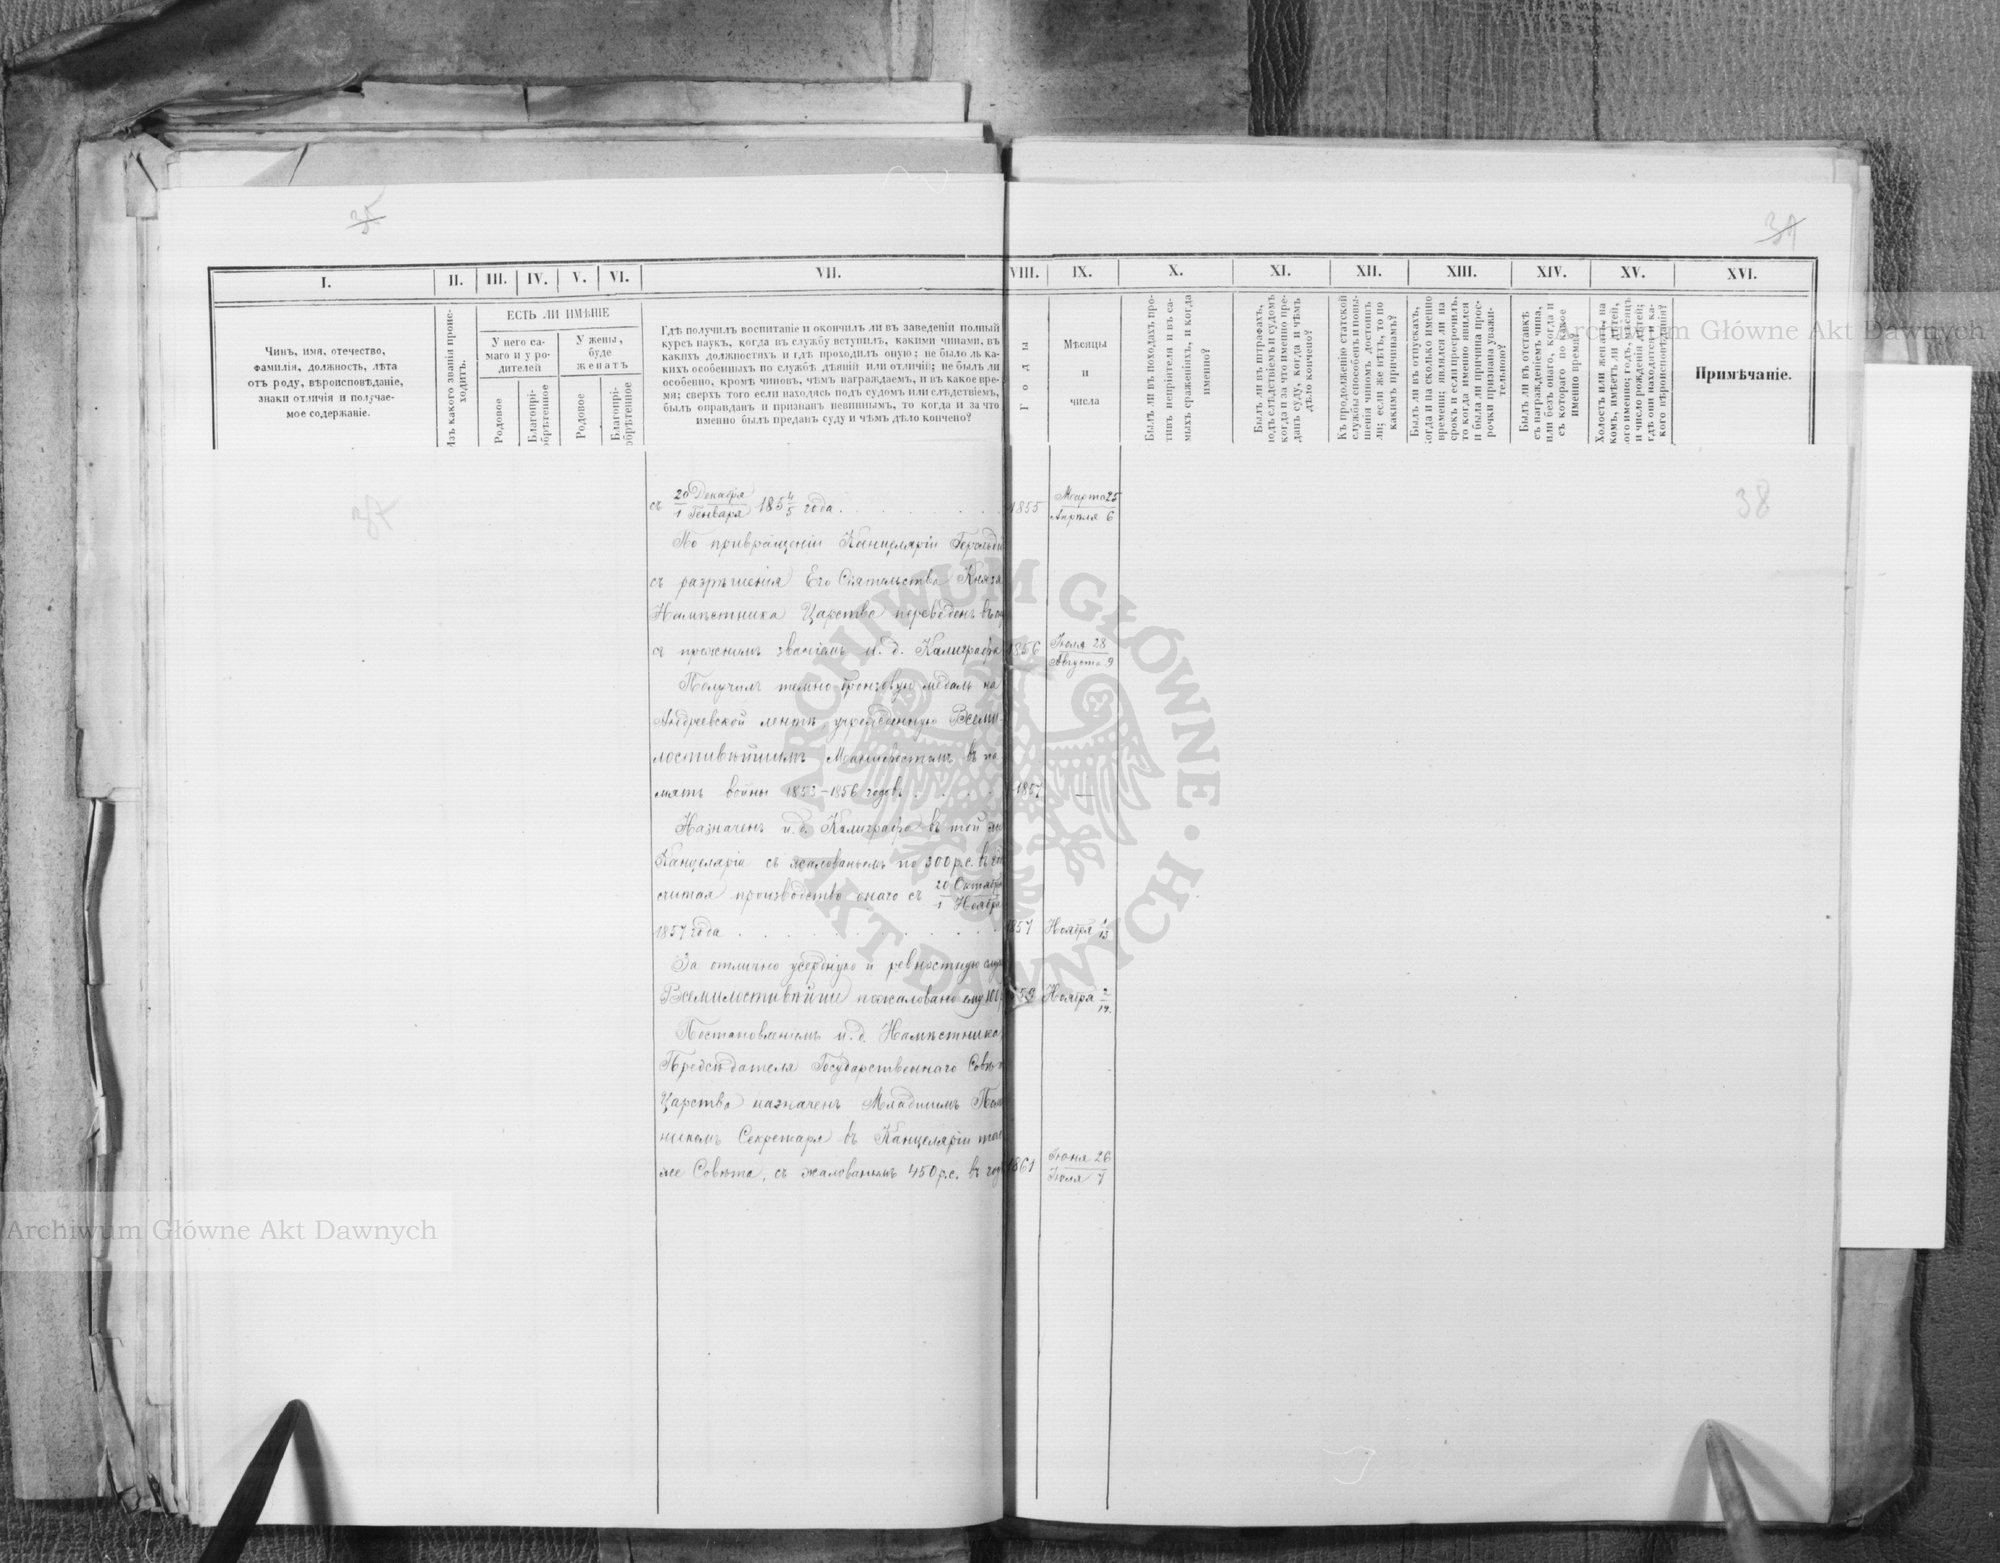 35
37
I.
II.
III.
IV.
V.
VI.
VII.
VIII.
IX.
X.
XI.
XII.
XIII.
XIV.
XV.
XVI.
Чинъ, имя, отечество,
фамилія, должность, лѣта
отъ роду, вѣроисповѣданіе,
знаки отличія и получае-
мое содержаніе.
Изъ какого званія проис-
ходитъ.
ЕСТЬ ЛИ ИМѢНІЕ
У него са-
маго и у ро-
дителей
У жены,
буде
женатъ
Родовое
Благопрі-
обрѣтенное
Родовое
Благопрі-
обрѣтенное
Гдѣ получилъ воспитаніе и окончилъ ли въ заведеніи полный
курсъ наукъ, когда въ службу вступилъ, какими чинами, въ
какихъ должностяхъ и гдѣ проходилъ оную; не было ль ка-
кихъ особенныхъ по службѣ дѣяній или отличій; не былъ ли
особенно, кромѣ чиновъ, чѣмъ награждаемъ, и въ какое вре-
мя; сверхъ того если находясь подъ судомъ или слѣдствіемъ,
былъ оправданъ и признанъ невиннымъ, то когда и за что
именно былъ преданъ суду и чѣмъ дѣло кончено?
Годы
Мѣсяцы
и
числа
Былъ ли въ походахъ про-
тивъ непріятеля и въ са-
мыхъ сраженіяхъ, и когда
именно?
Былъ ли въ штрафахъ,
подъ слѣдствіемъ и судомъ
когда и за что именно пре-
данъ суду, когда и чѣмъ
дѣло кончено?
Къ продолженію статской
службы способенъ и повы-
шенія чиномъ достоинъ
ли; если же нѣтъ, то по
какимъ причинамъ?
Былъ ли въ отпускахъ,
когда и на сколько именно
времени; являлся ли на
срокъ и если просрочилъ,
то когда именно явился
и была ли причина прос-
рочки признана уважи-
тельною?
Былъ ли въ отставкѣ
съ награжденіемъ чина,
или безъ онаго, когда и
съ котораго по какое
именно время?
Холостъ или женатъ, на
комъ, имѣетъ ли дѣтей,
кого именно; годъ, мѣсяцъ
и число рожденія дѣтей;
гдѣ они находятся и ка-
кого вѣроисповѣданія?
Примѣчаніе.
37
38
съ 20 Декабря / 1 Генваря 185 4/5 года . . . 1855 Марта 25 / Апрѣля 6
По превращеніи Канцеляріи Герольдіи
съ разрѣшенія Его Сіятельства Князя
Намѣстника Царства переведенъ въ
съ прежнимъ званіемъ и. д. Калиграфа 1856 Іюля 28 / Августа 9
Получилъ темно-бронзовую медаль на
Андреевской лентѣ, учрежденную Всеми-
лостивѣйшимъ Манифестомъ въ па
мять войны 1853–1856 годовъ . . . . 1857 —
Назначенъ и. д. Калиграфа въ той же
Канцеляріи съ жалованьемъ по 300 р.с. въ
считая производство онаго съ 20 Октября / 1 Ноября
1857 года . . . 1857 Ноября 1/13
За отлично усердную и ревностную
Всемилостивѣйше пожаловано ему 100 Ноября 2/14.
Постановленіемъ и. д. Намѣстника,
Предсѣдателя Государственнаго Совѣта
Царства назначенъ Младшимъ Пом
никомъ Секретаря въ Канцеляріи того
же Совѣта, съ жалованьемъ 450 р.с. въ годъ 1861 Іюня 26 / Іюля 7
Archiwum Główne Akt Dawnych
Archiwum Główne Akt Dawnych
ARCHIWUM GŁÓWNE AKT DAWNYCH